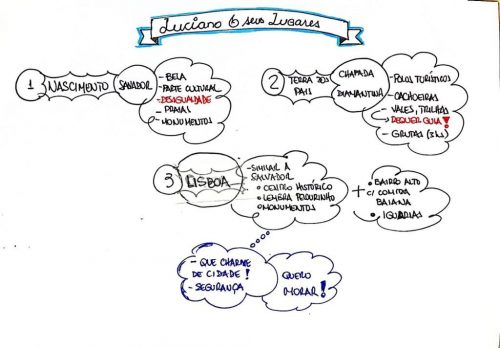 Luciano & seus Lugares
1 NASCIMENTO SALVADOR
- BELA
- PARTE CULTURAL
- DESIGUALDADE
- PRAIAS
- MONUMENTOS
2 TERRA DOS
PAIS
CHAPADA
DIAMANTINA
- POLOS TURÍSTICOS
- CACHOEIRAS
- VALES, TRILHAS
REQUER GUIA!
- GRUTAS
3 LISBOA
- SIMILAR A
SALVADOR
• CENTRO HISTÓRICO
• LEMBRA PELOURINHO
• MONUMENTOS
+
• BAIRRO ALTO
C/ COMIDA
BAIANA
• IGUARIAS
- QUE CHARME
DE CIDADE!
- SEGURANÇA
QUERO
MORAR!